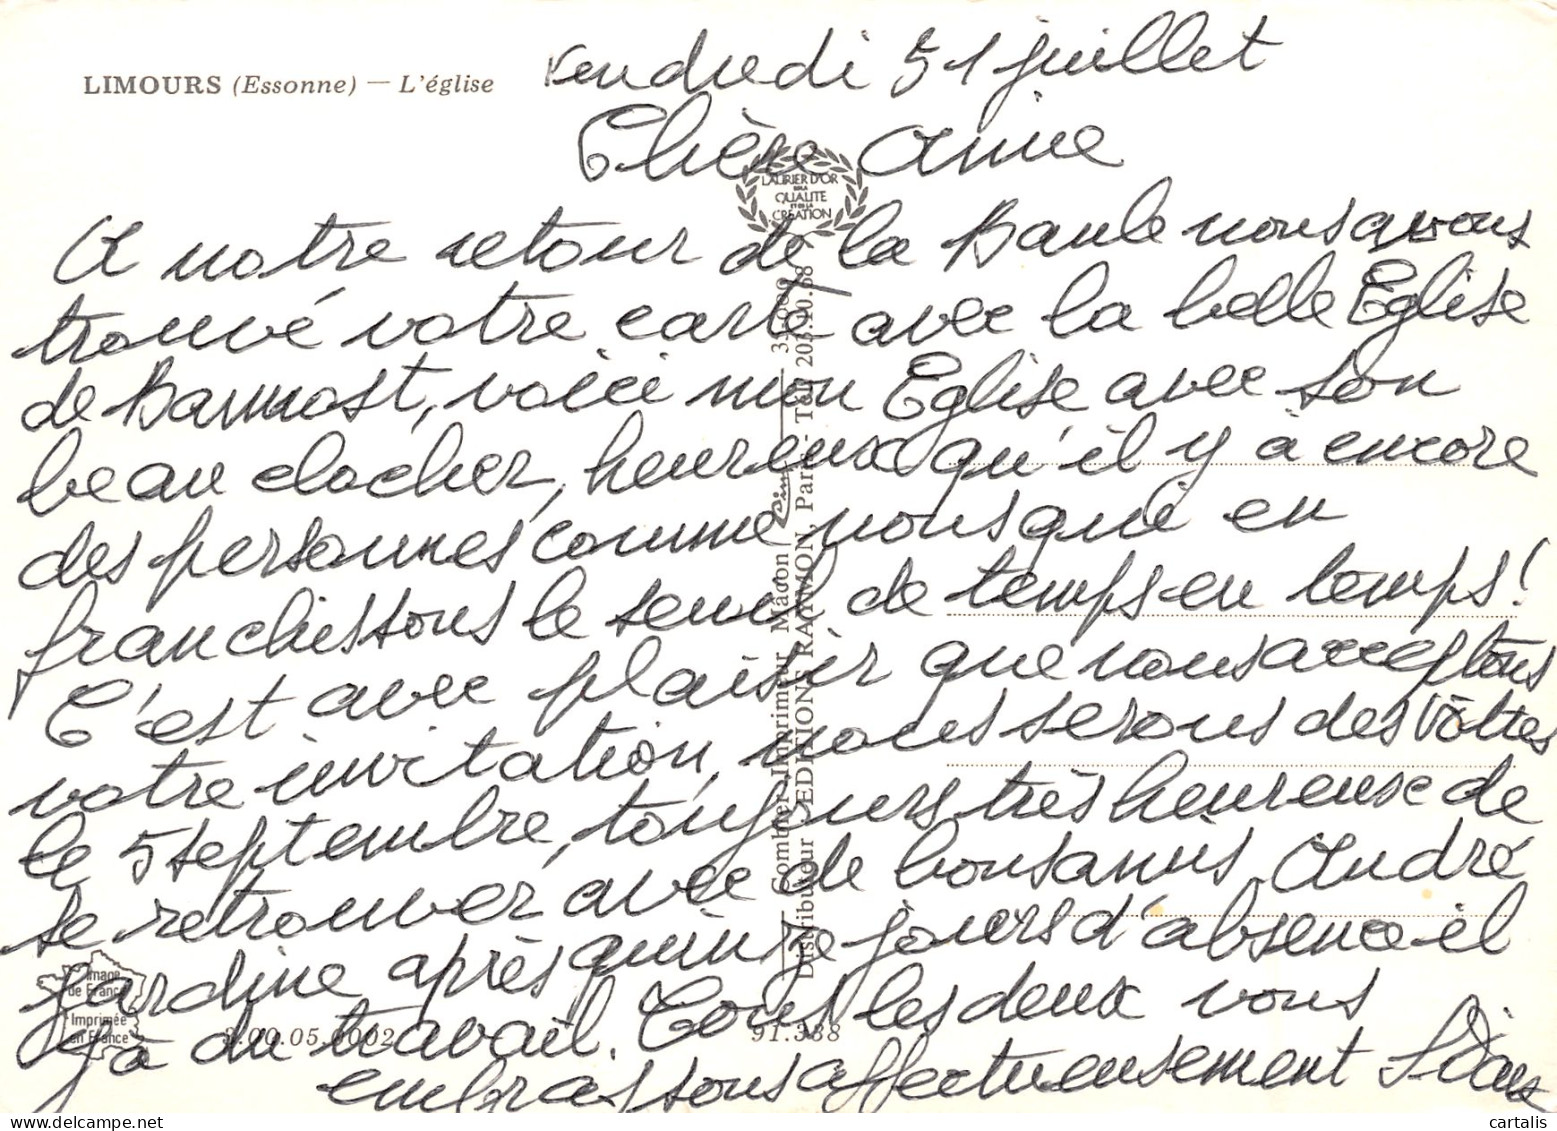 LIMOURS (Essonne) — L'église
Vendredi 31 juillet
Chère Anne
A notre retour de la Baule nous avons
trouvé votre carte avec la belle Eglise
de voici mon Eglise avec son
beau clocher, heureux qu'il y à encore
des personnes comme nous qui en
franchissons le seuil de temps en temps!
C'est avec plaisir que nous acceptons
votre invitation, nous serons des vôtres
le 5 septembre, toujours très heureux de
se retrouver avec de bons amis. André
jardine après quinze jours d'absence il
y a du travail. Tous les deux vous
embrassons affectueusement
LAURIER D'OR
DE LA
QUALITE
ET DE LA
CREATION
Combier Imprimeur Mâcon
Distributeur : EDITIONS RAYMON, Paris - Tél. 203.10.68
Image
de France
Imprimée
en France
91.338
cartalis